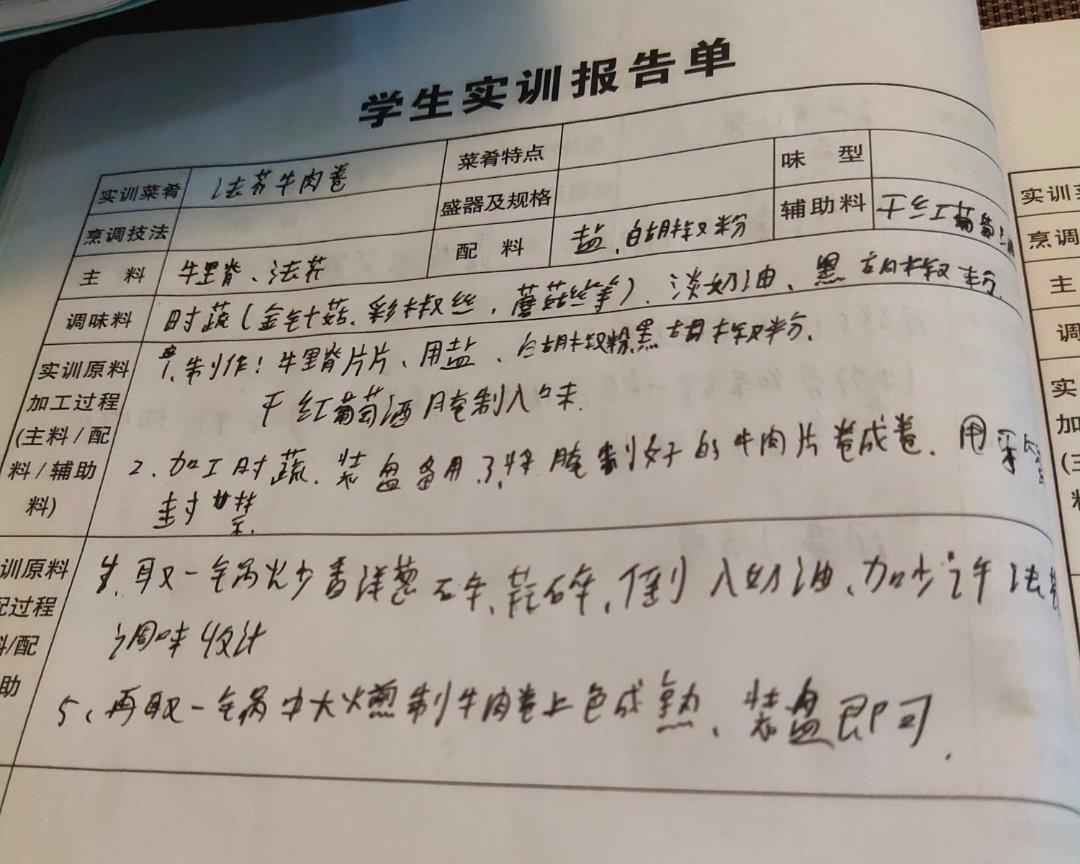 学生实训报告单
实训菜肴 法芥牛肉卷 菜肴特点 味型
烹调技法 盛器及规格 辅助料 干红葡萄
主料 牛里脊、法芥 配料 盐、白胡椒粉
调味料 时蔬(金针菇、彩椒丝，蘑菇丝等)、淡奶油、黑胡椒粉
实训原料 1、制作：牛里脊片片、用盐、白胡椒粉黑胡椒粉、
加工过程 干红葡萄酒腌制入味.
(主料/配 2、加工时蔬、装盘备用 3、将腌制好的牛肉片卷成卷、用
料/辅助 封紧.
料)
训原料 4、取一锅炒香洋葱碎、蒜碎、倒入奶油、加少许法芥
配过程 调味收汁
料/配
助 5、再取一锅中大火煎制牛肉卷上色成熟、装盘即可.
实训
烹调
主
调
实
加
(主
料